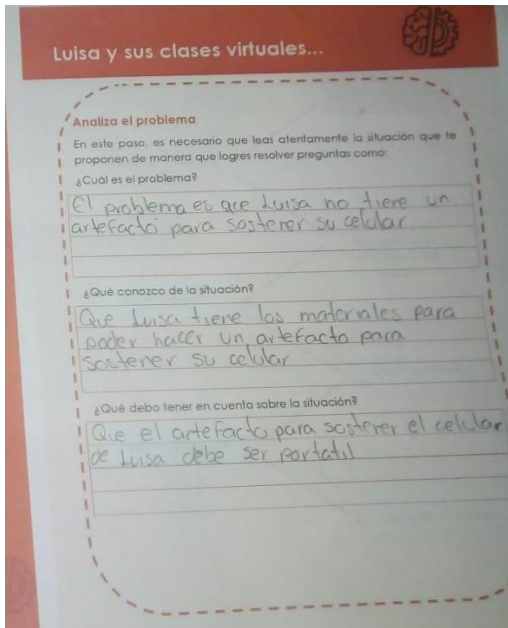 Luisa y sus clases virtuales...
Analiza el problema
En este paso, es necesario que leas atentamente la situación que te
proponen de manera que logres resolver preguntas como:
¿Cuál es el problema?
El problema es que Luisa no tiene un
artefacto para sostener su celular
¿Qué conozco de la situación?
Que Luisa tiene los materiales para
poder hacer un artefacto para
sostener su celular
¿Qué debo tener en cuenta sobre la situación?
Que el artefacto para sostener el celular
de Luisa debe ser portatil